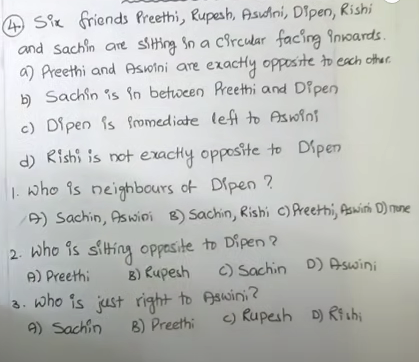 ④ Six friends Preethi, Rupesh, Aswini, Dipen, Rishi
and Sachin are sitting in a circular facing inwards.
a) Preethi and Aswini are exactly opposite to each other.
b) Sachin is in between Preethi and Dipen
c) Dipen is immediate left to Aswini
d) Rishi is not exactly opposite to Dipen
1. Who is neighbours of Dipen ?
A) Sachin, Aswini B) Sachin, Rishi C) Preethi, Aswini D) none
2. Who is sitting opposite to Dipen ?
A) Preethi B) Rupesh C) Sachin D) Aswini
3. Who is just right to Aswini ?
A) Sachin B) Preethi C) Rupesh D) Rishi